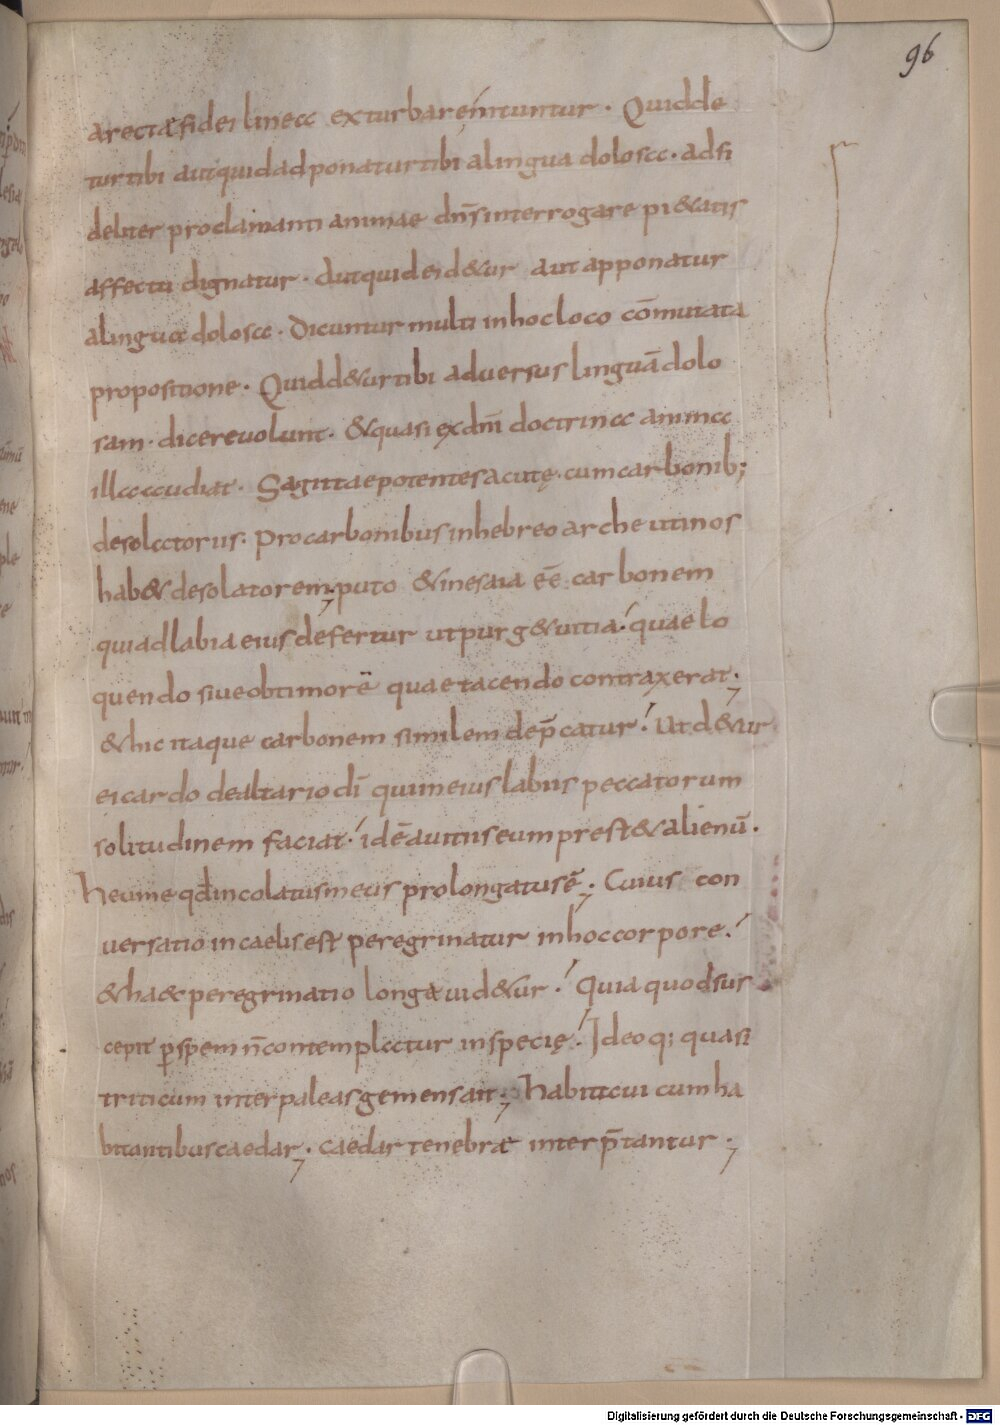 96
a recta fidei linea exturbare nituntur · Quid de
tur tibi aut quid adponatur tibi a lingua dolosa · ad fi
deliter proclamanti animae dn̄s interrogare pi&atis
affectu dignatur · aut quid ei d&ur aut apponatur
a lingua dolosa · Dicuntur multi in hoc loco cōmutata
propositione · Quid d&ur tibi adversus linguā dolo
sam · dicere volunt · & quasi ex dn̄i doctrina anima
illa audiat · Sagittae potentes acutę · cum carbonib;
desolatorus · Pro carbonibus in hebreo arche uti nos
hab& desolatorem puto & in esaia eē carbonem
qui ad labia eius defertur ut purg& uitia · quae lo
quendo sive ob timorē quae tacendo contraxerat ·
& hic itaque carbonem similem dep̄catur · ut d&ur
ei cardo de altario dī qui in eius labiis peccatorum
solitudinem faciat · idē a vitiis eum prest& alienū ·
Heu me qđ incolatus meus prolongatus ē · Cuius con
versatio in caelis est peregrinatur in hoc corpore ·
& haec peregrinatio longa uid&ur · Quia quod sus
cepit p̄ spem n̄ contemplatur in specię · Ideoq; quasi
triticum inter paleas gemens ait · Habitavi cum ha
bitantibus caedar · caedar tenebrae interp̄tantur ·
Digitalisierung gefördert durch die Deutsche Forschungsgemeinschaft - DFG